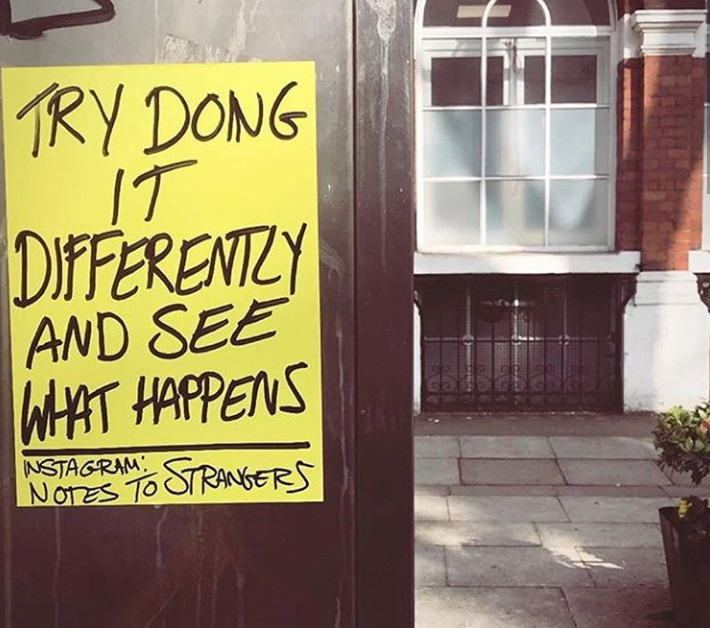 TRY DOING
IT
DIFFERENTLY
AND SEE
WHAT HAPPENS
INSTAGRAM:
NOTES TO STRANGERS